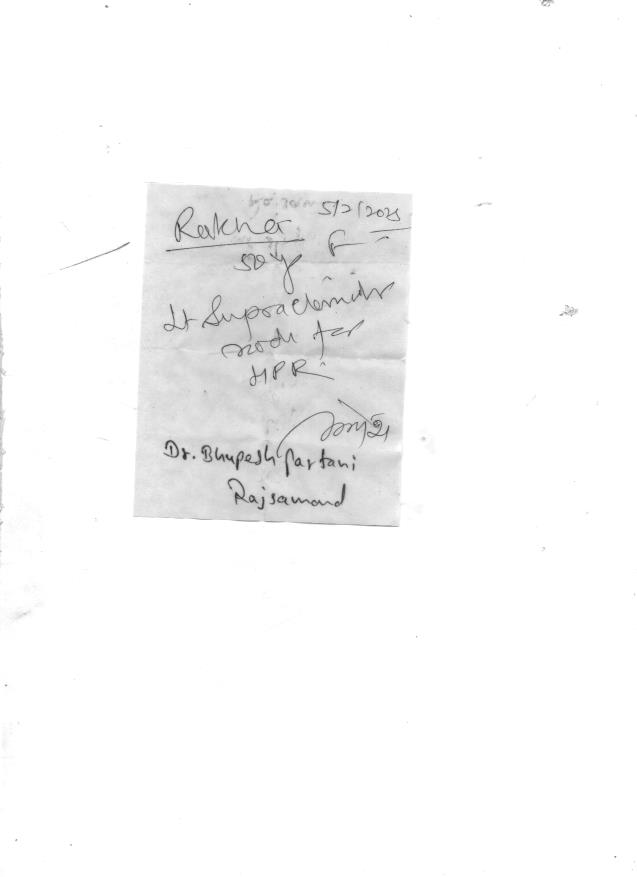 5/2/2025
Rakha
50 y F
Lt Supraclavicular
node for
HPR
Dr. Bhupesh Partani
Rajsamand